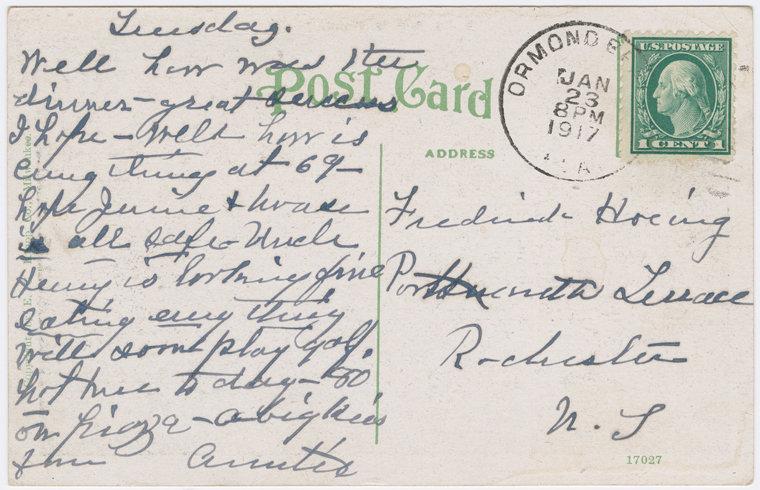 Tuesday.
Well how was the
dinner - great
I hope - Well how is
every thing at 69 -
hope Junie & house
is all safe - Uncle
Henry is looking fine
eating every thing
will soon play golf.
hot here to day - 80
on piazza - a big kiss
from Auntie
Post Card
ADDRESS
ORMOND
JAN
23
8 PM
1917
FLA
U.S. POSTAGE
1 CENT 1
Frederick Hoeing
Portsmouth Terrace
Rochester
N. Y
17027